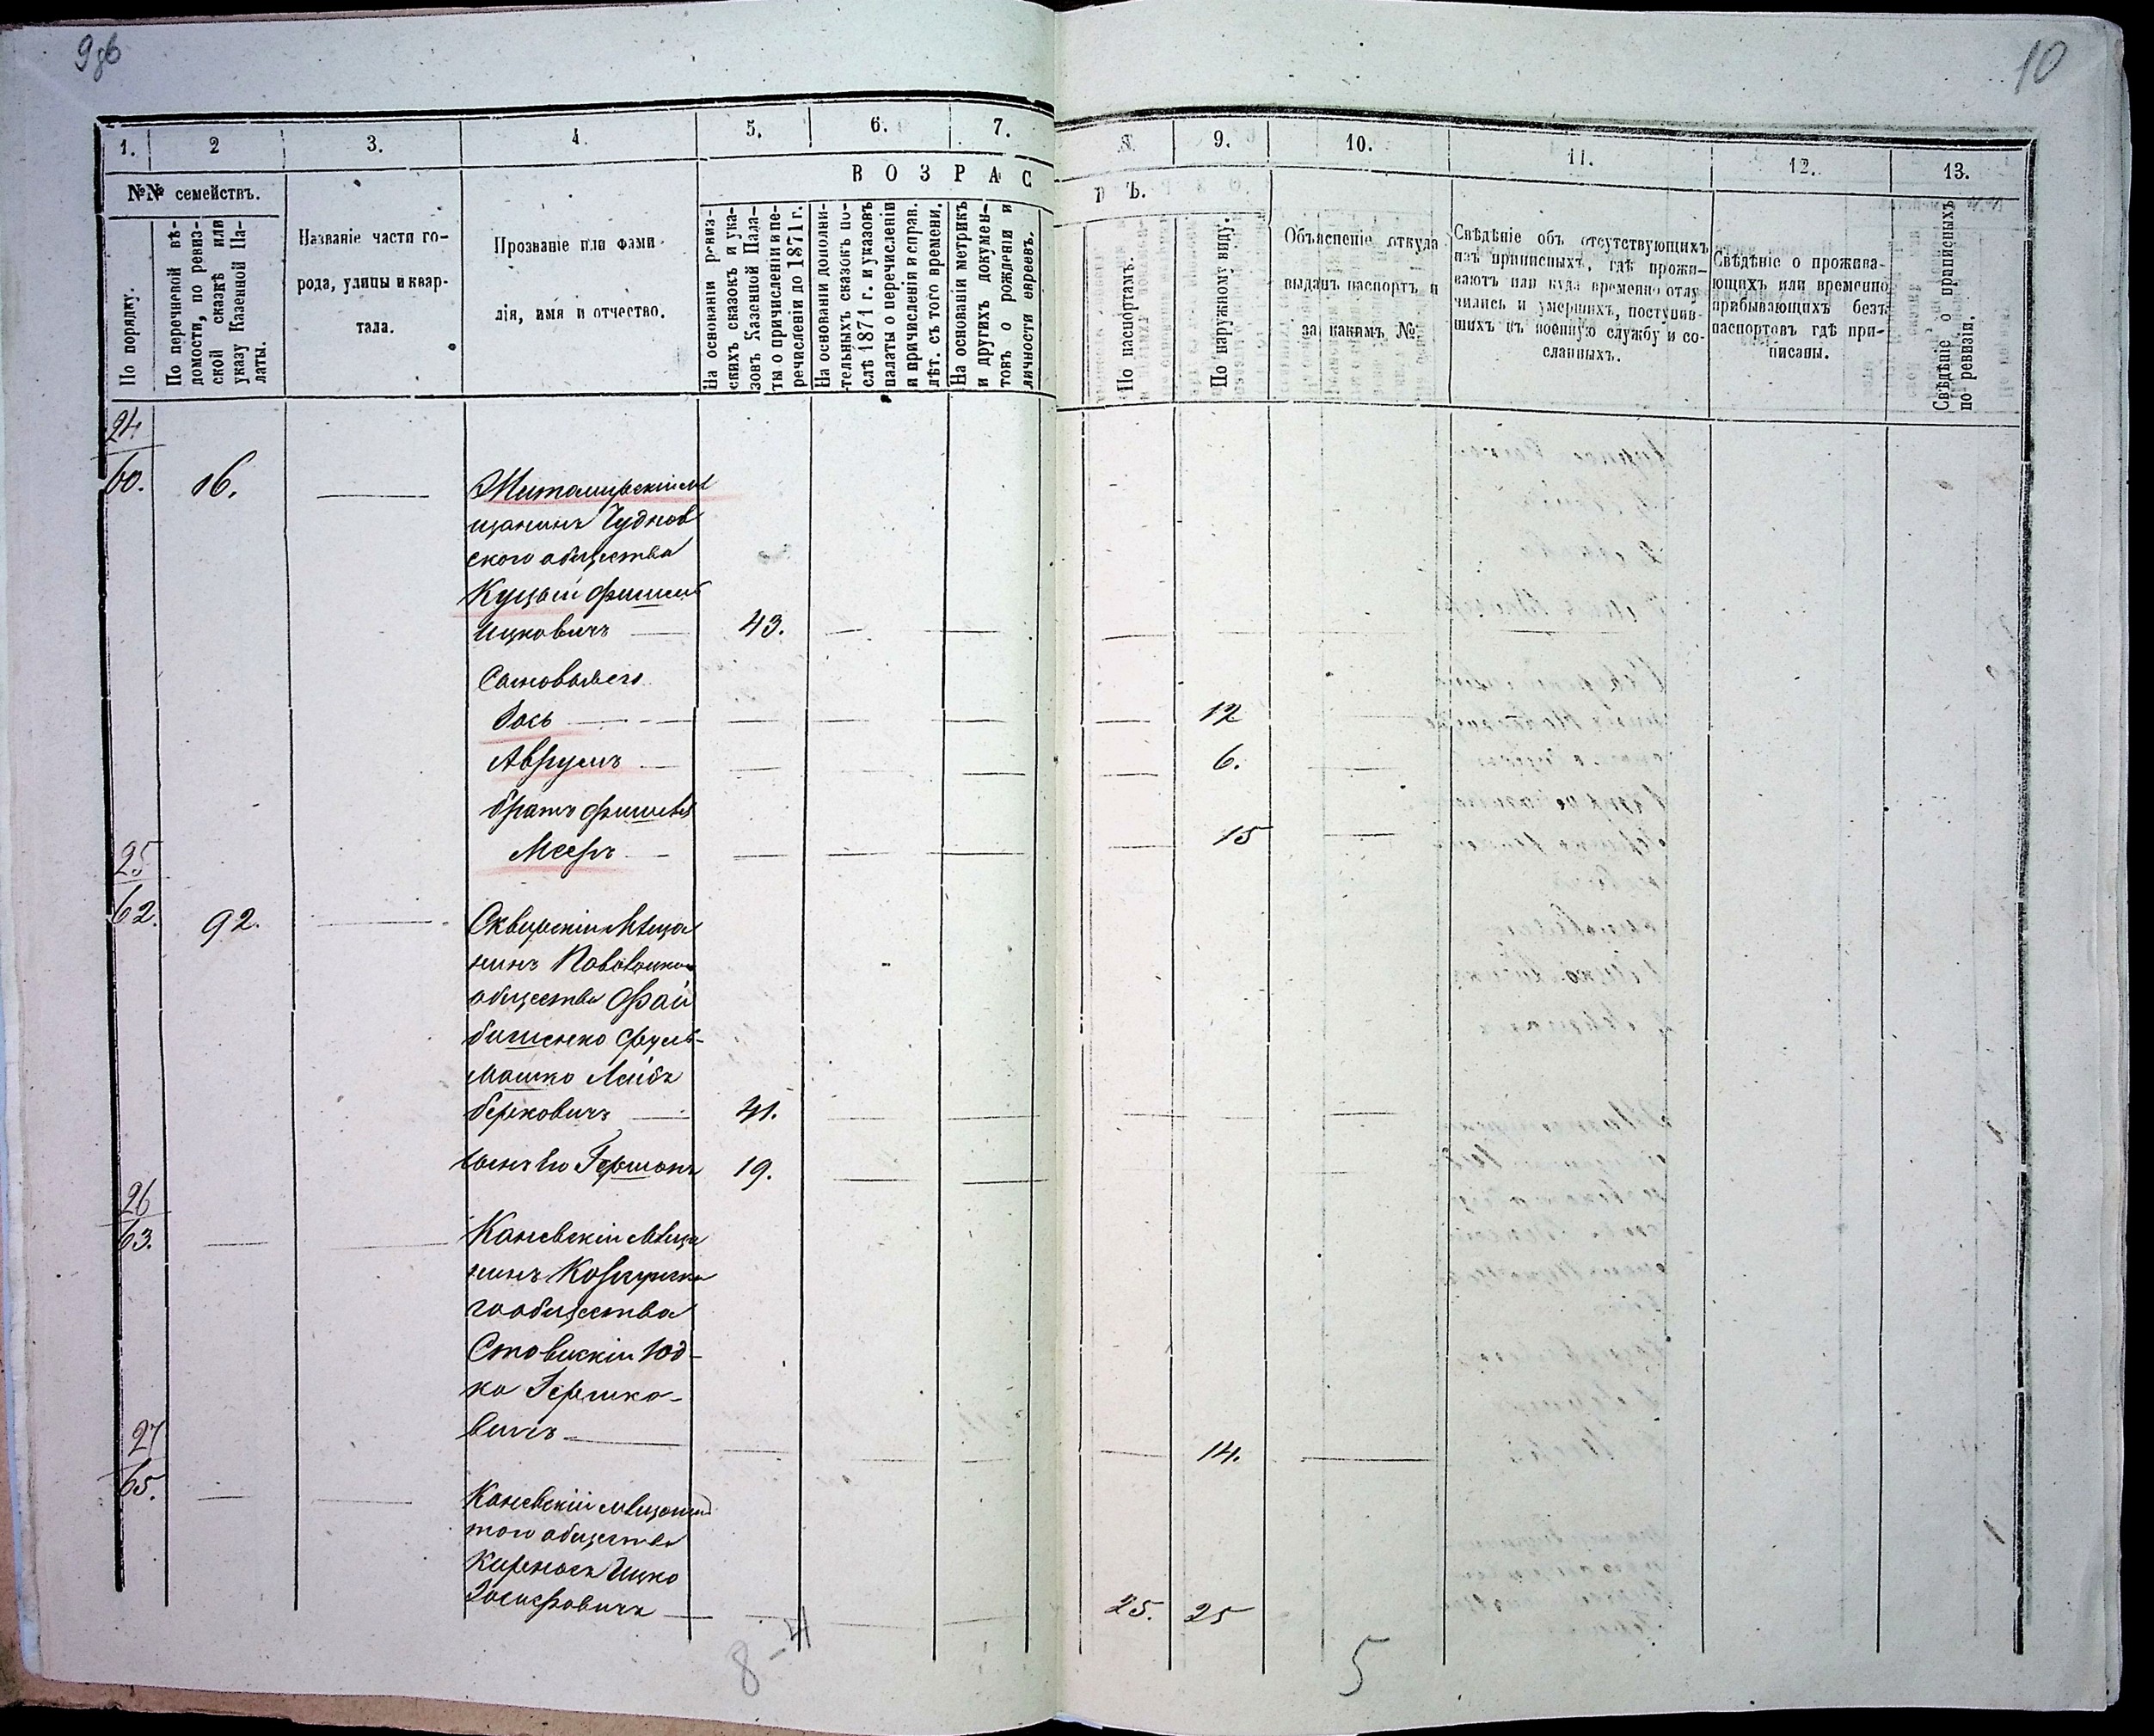 9об
10
1.
2
3.
4.
5.
6.
7.
8.
9.
10.
11.
12.
13.
№№ семействъ.
ВОЗРАС
ТЪ.
По порядку.
По перечневой вѣ-
домости, по ревиз-
ской сказкѣ или
указу Казенной Па-
латы.
Названіе части го-
рода, улицы и квар-
тала.
Прозваніе или фами-
лія, имя и отчество.
На основаніи ревиз-
скихъ сказокъ и ука-
зовъ Казенной Пала-
ты о причисленіи и пе-
речисленіи до 1871 г.
На основаніи дополни-
тельныхъ сказокъ по-
слѣ 1871 г. и указовъ
палаты о перечисленіи
и причисленіи и справ.
лѣт. съ того времени.
На основаніи метрикъ
и другихъ докумен-
товъ о рожденіи и
личности евреевъ.
По паспортамъ.
По наружному виду.
Объясненіе откуда
выданъ паспортъ и
за какимъ №.
Свѣдѣніе объ отсутствующихъ
изъ приписныхъ, гдѣ прожи-
ваютъ или куда временно отлу
чились и умершихъ, поступив-
шихъ въ военную службу и со-
сланныхъ.
Свѣдѣніе о прожива-
ющихъ или временно
прибывающихъ безъ
паспортовъ гдѣ при-
писаны.
Свѣдѣніе о приписныхъ
по ревизіи.
24
60. 16. Житомирскій мѣ
щанинъ Чуднов
ского общества
Куцый Фишель
Ицковичъ 43.
Сыновья его
Іось 12
Аврумъ 6.
братъ Фишеля
Мееръ 15
25
62. 92. Сквирскій мѣща
нинъ Паволоцкого
общества Фай
бишенко Фуль-
Машко Лейба
Берковичъ 41.
сынъ его Гершонъ 19.
26
63. Каневскій мѣща
нинъ
го общества
Ставискій Юд-
ко Гершко-
вичъ 14.
27
65. Каневскій мѣщанинъ
того общества
Кирносъ Ицко
25. 25
8-4
5